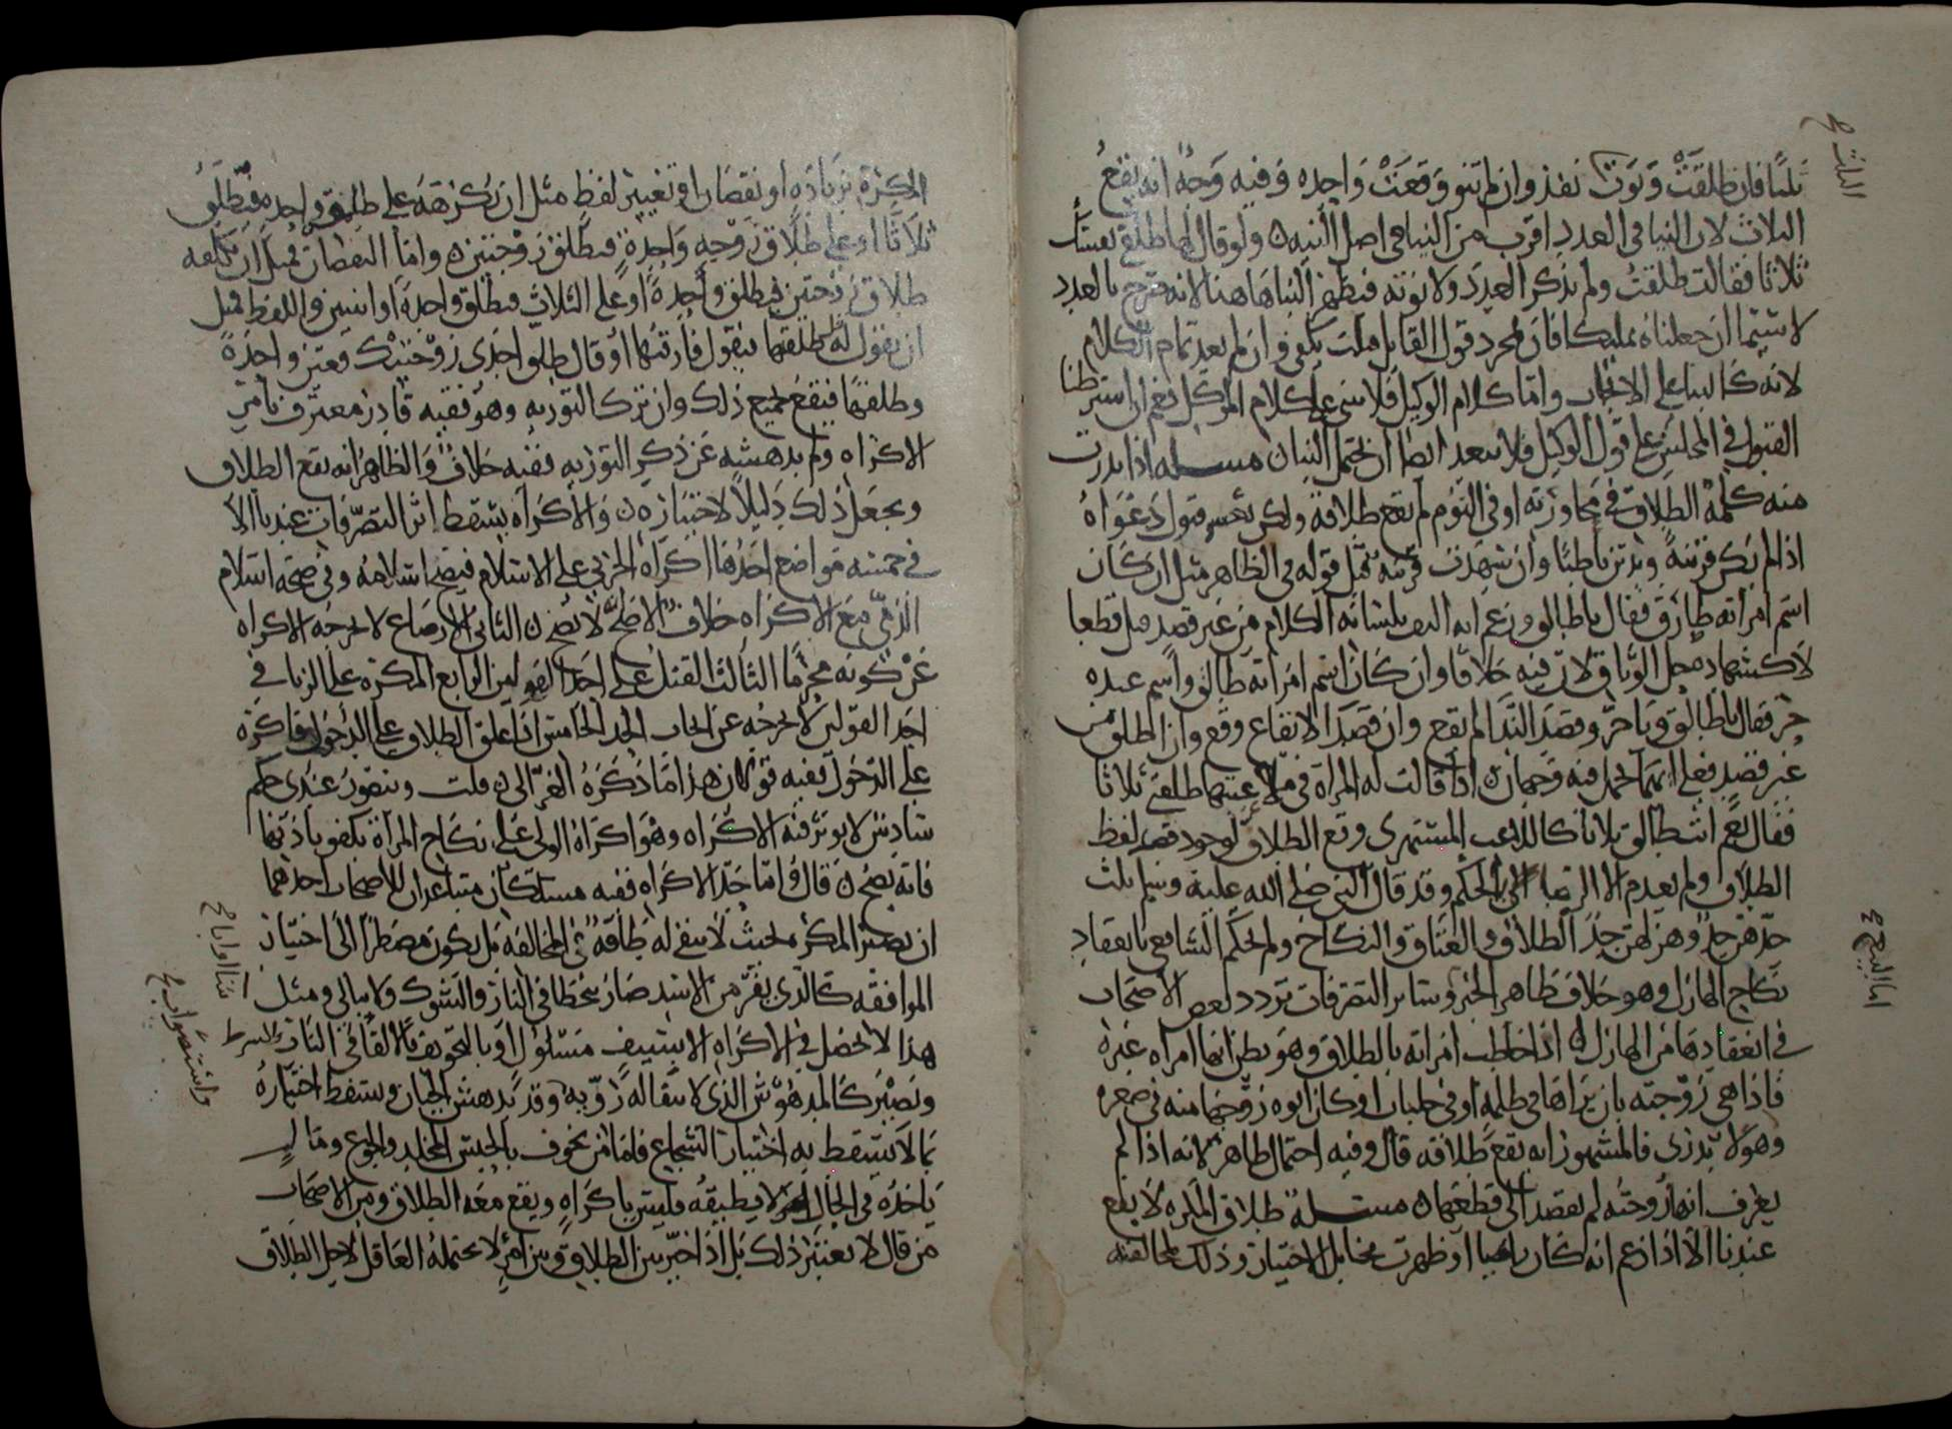 ثلثا فان طلقت ونوت نفذ وان لم تنو وقعت واحده وفيه وجه انه يقع
الثلاث لان البنا في العدد اقرب من البنا في اصل النيه ولو قال لها طلقي نفسك
ثلاثا فقالت طلقت ولم تذكر العدد ولا نوته فيظهر البنا هاهنا لانه صرح بالعدد
لا سيما ان جعلناه تمليكا فان مجرد قول القابل قبلت يكفي وان لم يعد تمام الكلام
لانه كالبنا على الايجاب واما كلام الوكيل فلا يبنى على كلام الموكل نعم ان اشترطنا
القبول في المجلس على قول الوكيل فلا يبعد ايضا ان يحتمل البنا مسله اذا بدرت
منه كلمة الطلاق في محاورته او في النوم لم يقع طلاقه ولكن يعسر قبول دعواه
اذا لم يكن قرينة ويدين باطنا وان شهدت قرينه قبل قوله في الظاهر مثل ان كان
اسم امراته طارق فقال يا طالق وزعم انه التف بلسانه الكلام من غير قصد قبل قطعا
لا كشهادة حل الوثاق لان فيه خلافا وان كان اسم امراته طالق واسم عبده
حر فقال يا طالق ويا حر وقصد الندا لم يقع وان قصد الايقاع وقع وان اطلق من
غير قصد فعلى ايهما يحمل فيه وجهان اذا قالت له المراة في ملاعبتهما طلقني ثلاثا
فقال نعم انت طالق ثلاثا كاللاعب المستهزي وقع الطلاق لوجود قصد لفظ
الطلاق ولم يعدم الا الرضا بالحكم وقد قال النبي صلى الله عليه وسلم ثلث
جدهن جد وهزلهن جد الطلاق والعتاق والنكاح ولم يحكم الشافعي بانعقاد
نكاح الهازل وهو خلاف ظاهر الخبر وساير التصرفات تردد بعض الاصحاب
في انعقادها من الهازل اذا خاطب امراته بالطلاق وهو يظن انها امراه غيره
فاذا هي زوجته بان يراها في ظلمة او في جلباب او كان ابوه زوجها منه في صغره
وهو لا يدري فالمشهور انه يقع طلاقه قال وفيه احتمال ظاهر لانه اذا لم
يعرف انها زوجته لم يقصد الى قطعها مسلة طلاق المكره لا يقع
عندنا الا اذا زعم انه كان راضيا او ظهرت مخايل الاختيار وذلك بمخالفة
الثلاث ح
المكره بزياده او نقصان او تغيير لفظ مثل ان يكرهه على طلقة واحده فيطلق
ثلاثا او على طلاق زوجه واحدة فيطلق زوجتين واما النقصان فمثل ان يكلفه
طلاق زوجتين فيطلق واحدة او على الثلاث فيطلق واحدة او اثنين واللفظ مثل
ان يقول له طلقها فيقول فارقتها او قال طلق احدى زوجتيك فعين واحدة
وطلقها فيقع جميع ذلك وان ترك التوريه وهو فقيه قادر معترف بامر
الاكراه ولم يدهشه عن ذكر التوريه ففيه خلاف والظاهر انه يقع الطلاق
ويجعل ذلك دليلا لاختياره والاكراه يسقط اثر التصرفات عندنا الا
في خمسه مواضع احدها اكراه الحربي على الاسلام فيصح اسلامه وفي صحة اسلام
الذمي مع الاكراه خلاف الاصح لا يصح الثاني الارضاع لا يخرجه الاكراه
عن كونه محرما الثالث القتل على احد القولين الرابع المكره على الزنا في
احد القولين لا يخرجه عن ايجاب الحد الخامس اذا علق الطلاق على الدخول فاكره
على الدخول ففيه قولان هذا ما ذكره الغزالي قلت ويتصور عندي حكم
سادس لا يوثر فيه الاكراه وهو اكراه الولي على نكاح المراة بكفو باذنها
فانه يصح قال واما حد الاكراه ففيه مسلكان متباعدان للاصحاب احدهما
ان يصير المكره بحيث لا يبقى له طاقة في المخالفه بل يكون مضطرا الى اختيار
الموافقه كالذي يفر من الاسد صار يتخطا في النار والشوك ولا يبالي ومثل
هذا لا يحصل في الاكراه الا بسيف مسلول او بالتخويف بالالقا في النار
ويصير كالمدهوش الذي لا يبقا له رويه وقد يدهش الجبان ويسقط اختياره
بما لا يسقط به اختيار الشجاع فاما من يخوف بالحبس المخلد والجوع وما ليس
ياخذه في الحال لا يطيقه فليس باكراه ويقع معه الطلاق ومن الاصحاب
من قال لا يعتبر ذلك بل اذا خير بين الطلاق وبين امر لا يحتمله العاقل لاجل الطلاق